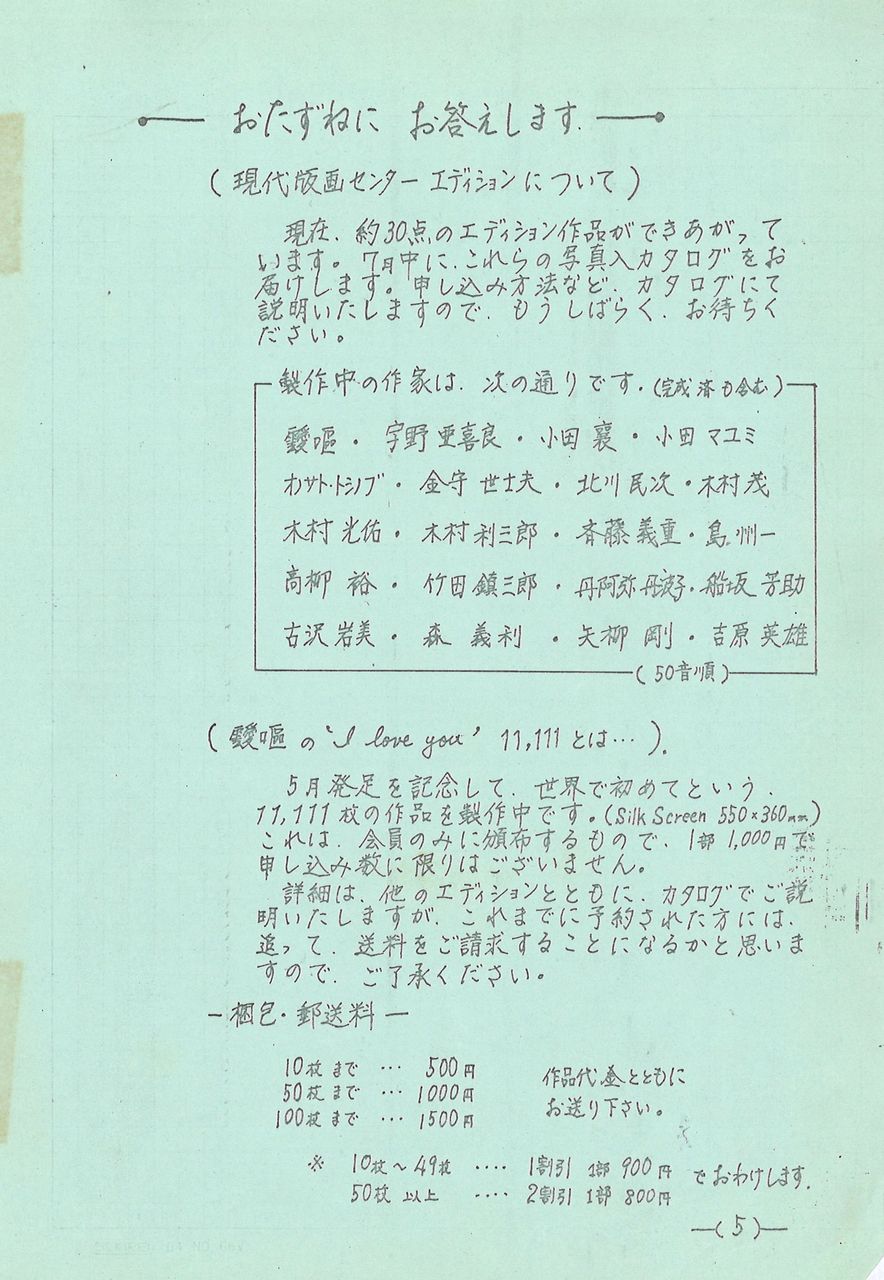 おたずねに お答えします.
(現代版画センター エディションについて)
現在、約30点のエディション作品ができあがって
います。7月中に、これらの写真入カタログをお
届けします。申し込み方法など、カタログにて
説明いたしますので、もうしばらく、お待ちく
ださい。
製作中の作家は、次の通りです.(完成済も含む)
靉嘔・宇野亜喜良・小田 襄・小田マユミ
オサト・トシノブ・金守 世士夫・北川民次・木村茂
木村光佑・木村利三郎・斉藤義重・島 州一
高柳 裕・竹田鎮三郎・丹阿弥丹波子・船坂 芳助
古沢岩美・森 義利・矢柳 剛・吉原英雄
(50音順)
(靉嘔の'I love you' 11,111とは…).
5月発足を記念して、世界で初めてという、
11,111枚の作品を製作中です。(Silk Screen 550×360mm)
これは、会員のみに頒布するもので、1部1,000円で
申し込み数に限りはございません。
詳細は、他のエディションとともに、カタログでご説
明いたしますが、これまでに予約された方には、
追って、送料をご請求することになるかと思いま
すので、ご了承ください。
-梱包・郵送料-
10枚まで … 500円
50枚まで … 1000円
100枚まで … 1500円
作品代金とともに
お送り下さい。
※ 10枚～49枚 ‥‥ 1割引 1部 900円
50枚以上 ‥‥ 2割引 1部 800円
でおわけします.
-(5)-